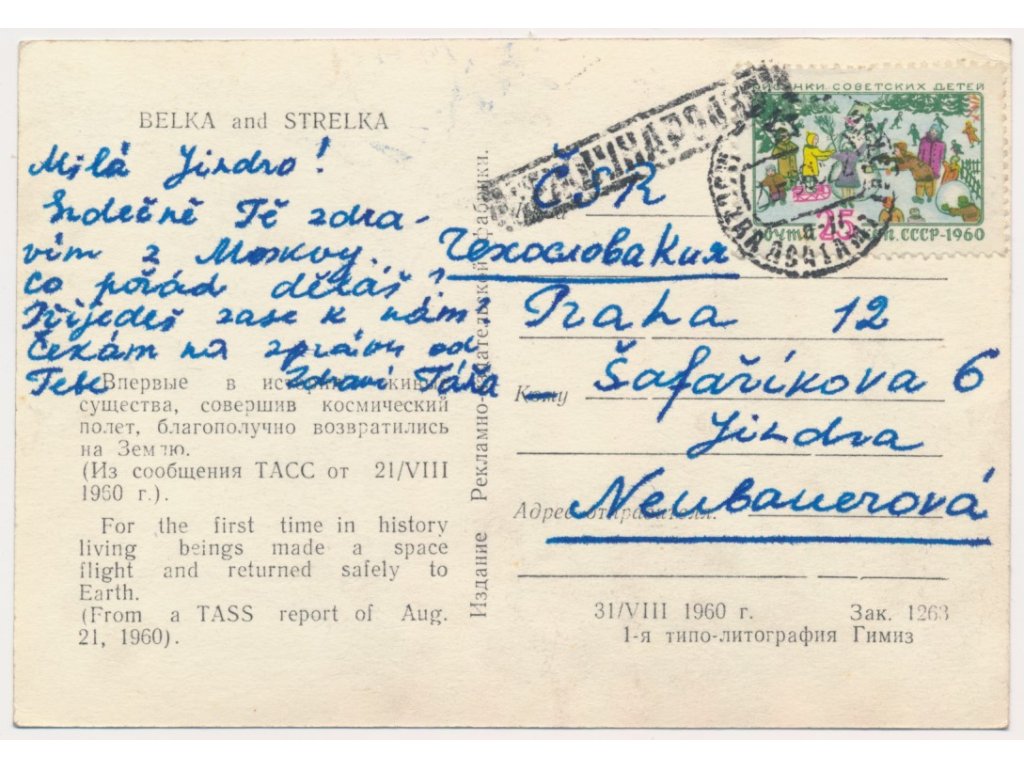 BELKA and STRELKA
Milá Jindro!
Srdečně Tě zdra-
vím z Moskvy.
Co pořád děláš?
Přijedeš zase k nám?
Čekám na zprávu od
Tebe Zdraví Táňa
Впервые в истории живые
существа, совершив космический
полет, благополучно возвратились
на Землю.
(Из сообщения ТАСС от 21/VIII
1960 г.).
For the first time in history
living beings made a space
flight and returned safely to
Earth.
(From a TASS report of Aug.
21, 1960).
Издание Рекламно-издательской фабрики.
МЕЖДУНАРОДНОЕ
РИСУНКИ СОВЕТСКИХ ДЕТЕЙ
ПОЧТА 25 КОП. СССР-1960
ČSR
Чехословакия
Praha 12
Кому Šafaříkova 6
Jindra
Адрес отправителя.
Neubauerová
31/VIII 1960 г. Зак. 1263
1-я типо-литография Гимиз